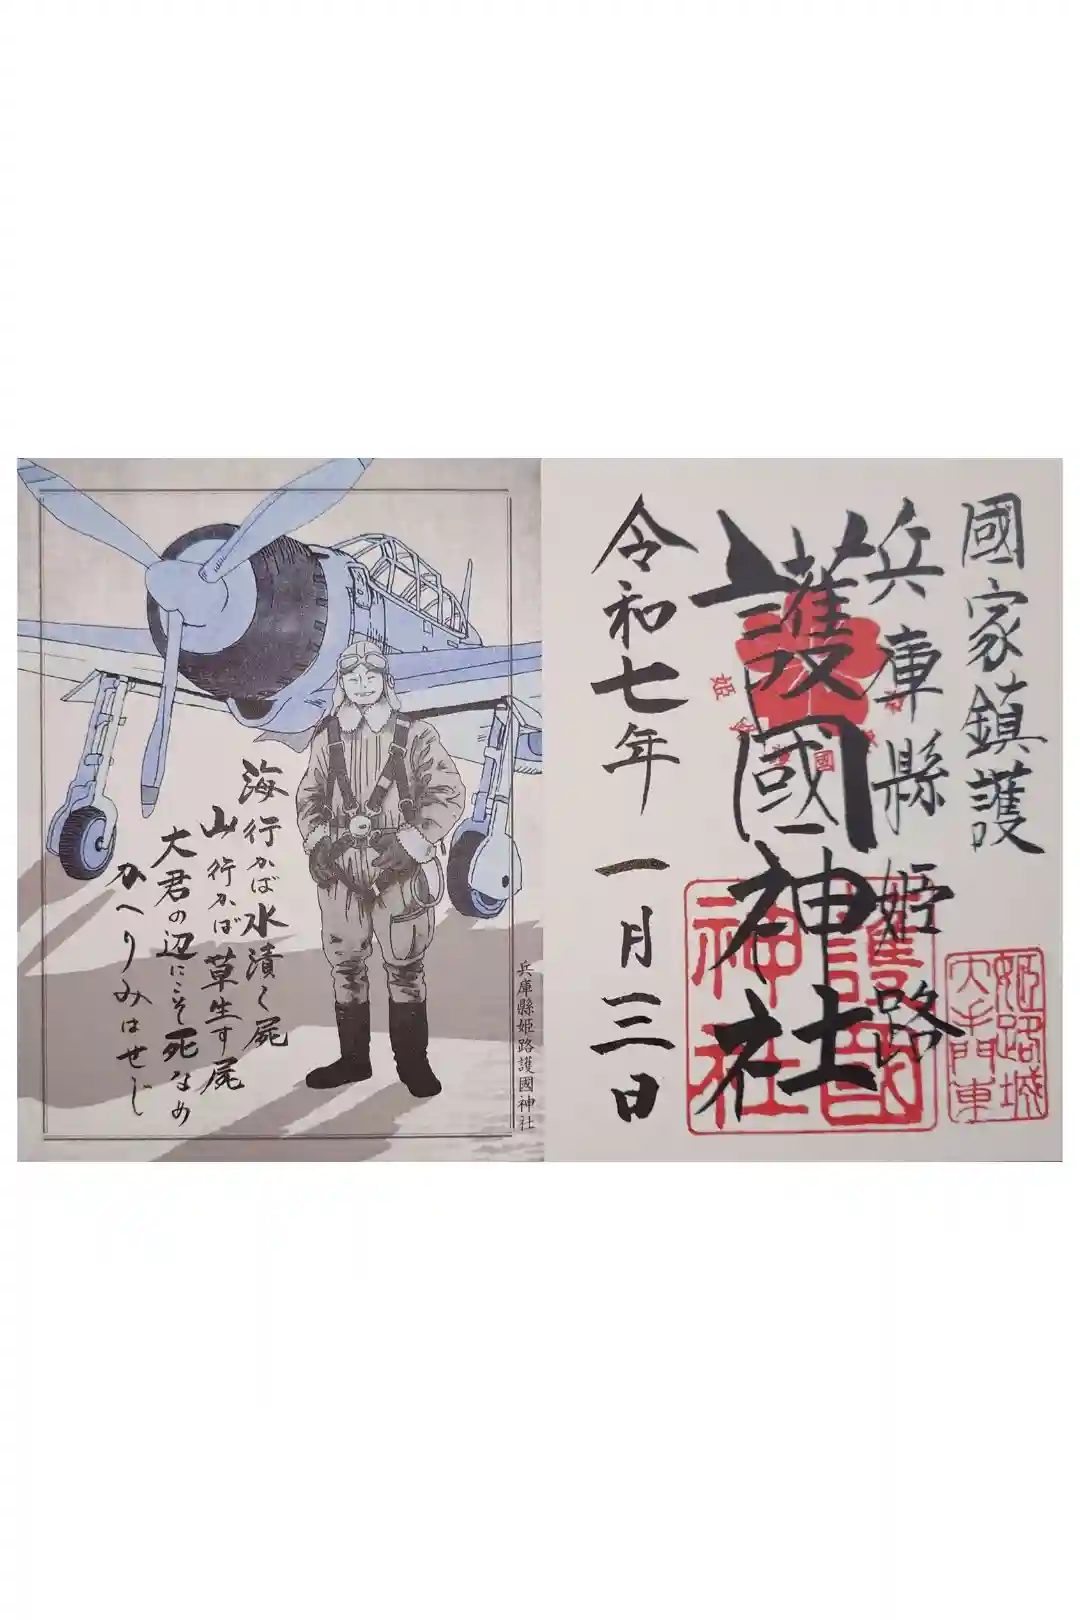 國家鎮護
兵庫縣姫路
護國神社
令和七年 一月三日
護國
神社
姫路城
大手門東
海行かば水漬く屍
山行かば草生す屍
大君の辺にこそ死なめ
かへりみはせじ
兵庫縣姫路護國神社